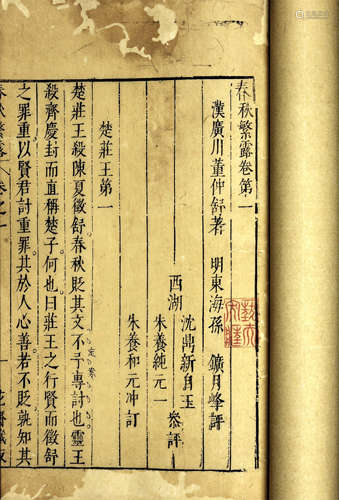 春秋繁露卷第一
漢廣川董仲舒著 明東海孫 鑛月峰評
西湖
沈鼎新自玉
朱養純元一
叅評
朱養和元冲訂
楚莊王第一
楚莊王殺陳夏徵舒春秋貶其文不予專討也靈王
殺齊慶封而直稱楚子何也曰莊王之行賢而徵舒
之罪重以賢君討重罪其於人心善若不貶孰知其
春秋繁露 卷之一 一 花齋藏板